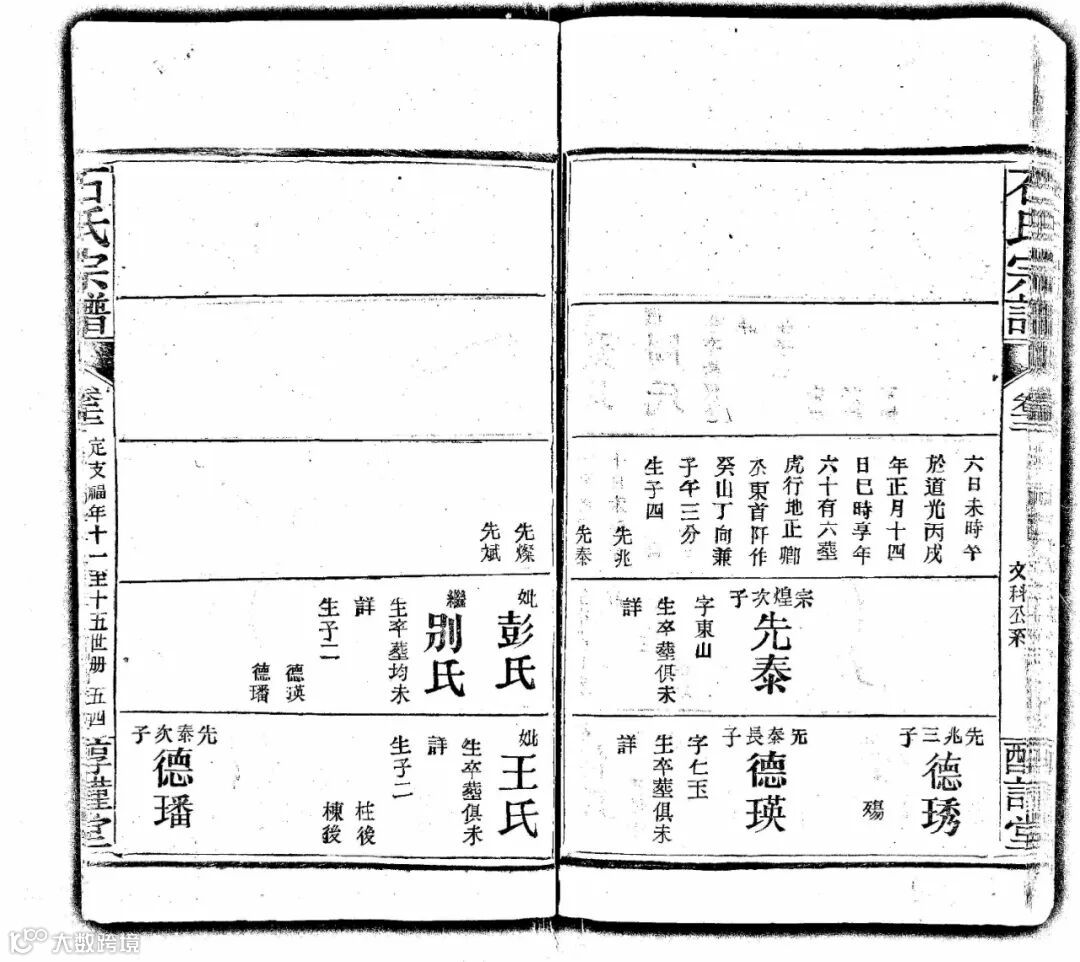 石氏宗譜
卷三
文科公系
六日未時卒
於道光丙戌
年正月十四
日巳時享年
六十有六塟
虎行地止卿
水東首阡作
癸山丁向兼
子午三分
生子四
先兆
先泰
先燦
先斌
宗煌次子
先泰
字東山
生卒塟俱未
詳
妣
彭氏
繼
別氏
生卒塟均未
詳
生子二
德瑛
德璠
先兆三子
德琇
殤
先泰長子
德瑛
字仁玉
生卒塟俱未
詳
妣
王氏
生卒塟俱未
詳
生子二
柱後
棟後
先泰次子
德璠
石氏宗譜
卷三
定支福年十一至十五世册
五四
大数跨境